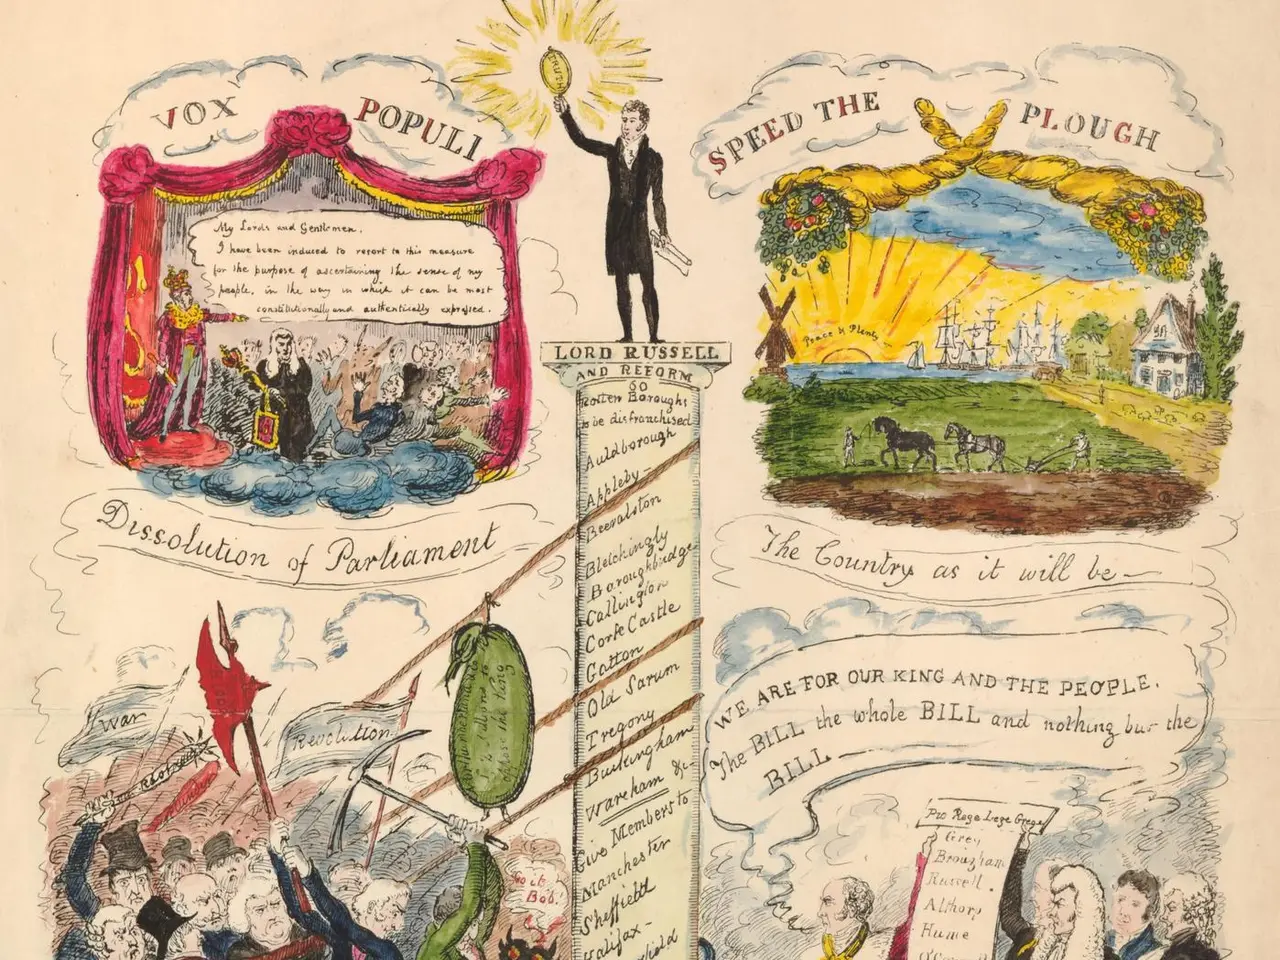 VOX POPULI
My Lords and Gentlemen,
I have been induced to resort to this measure
for the purpose of ascertaining the sense of my
people, in the way in which it can be most
constitutionally and authentically expressed.
Dissolution of Parliament
TRUTH
LORD RUSSELL
AND REFORM
60
rotten Boroughs
to be disfranchised
Auldborough
Appleby-
Beeralston
Bletchingly
Boroughbridge
Callington
Corfe Castle
Gatton
Old Sarum
Tregony
Buckingham
Wareham &c
Give Members to
Manchester
Sheffield
Halifax-
SPEED THE PLOUGH
Peace & Plenty
The Country as it will be-
War
Revolution
to
oppose the King
Go it
Bob!
WE ARE FOR OUR KING AND THE PEOPLE.
The BILL the whole BILL and nothing but the
BILL
Pro Rege Lege Grege
Grey
Brougham
Russell.
Althorp
Hume